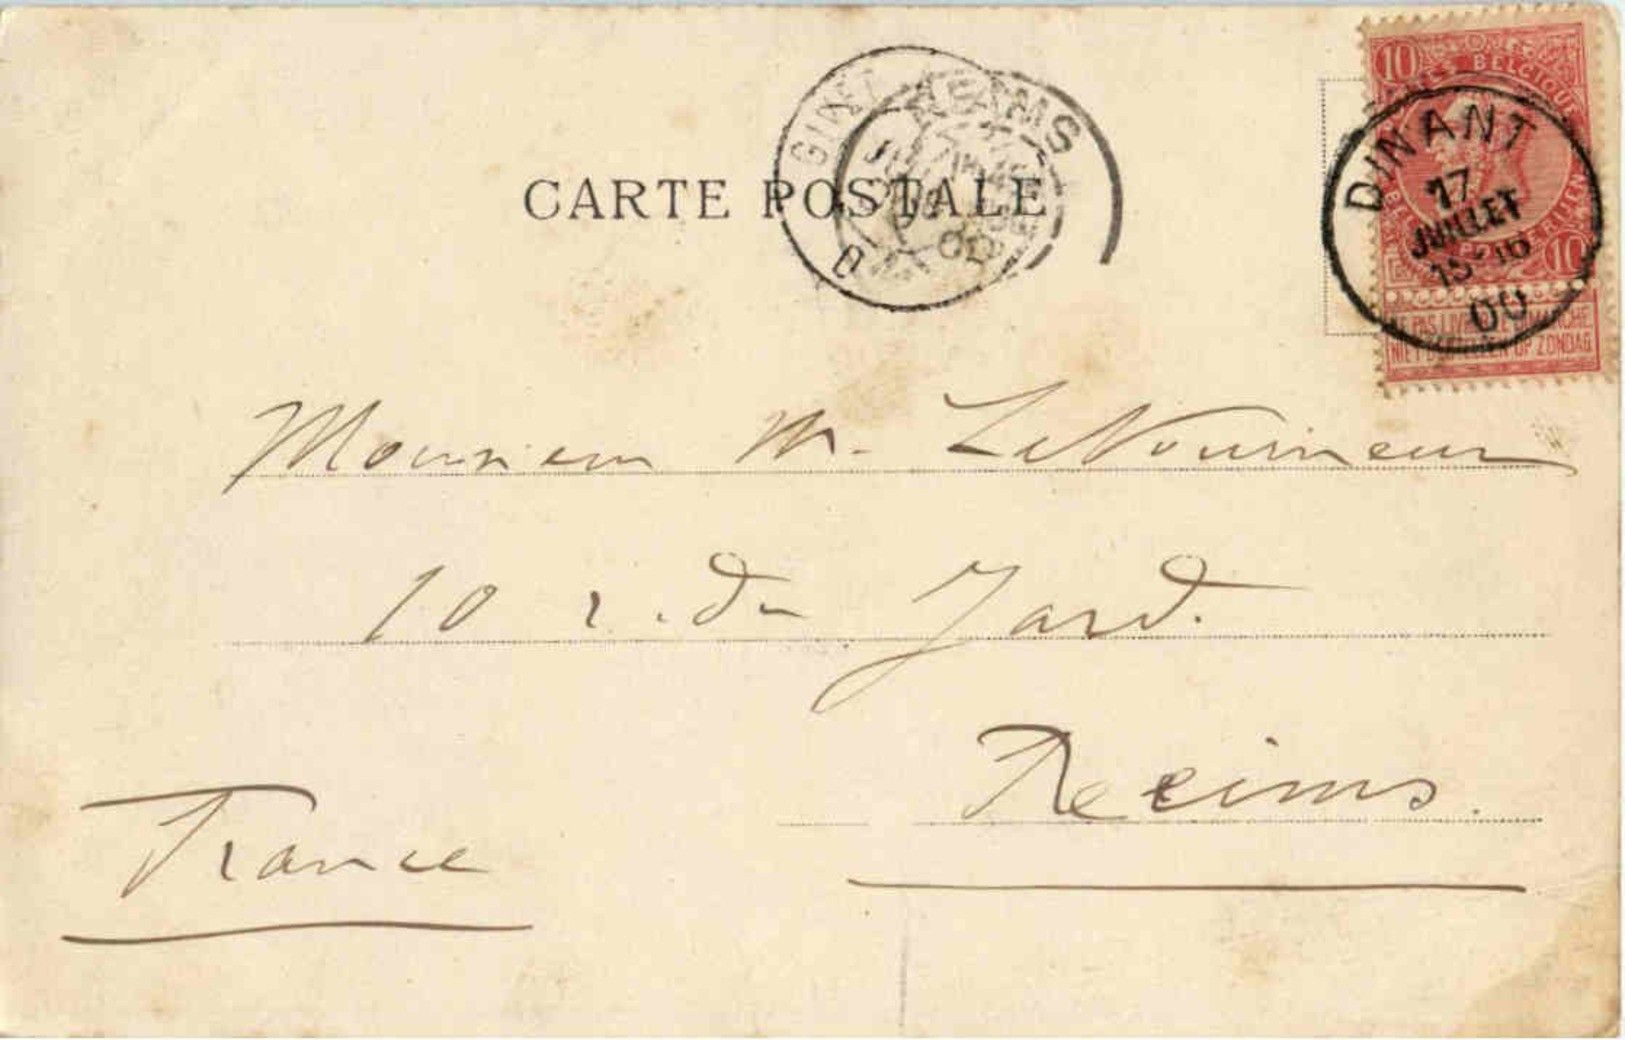 10 POSTES BELGIQUE
CARTE POSTALE
GIVET
REIMS
DINANT
17
JUILLET
15-16
00
10
NE PAS LIVRER LE DIMANCHE
NIET BESTELLEN OP ZONDAG
Monsieur M. LeNourineur
10 r. du Jard.
Reims.
France